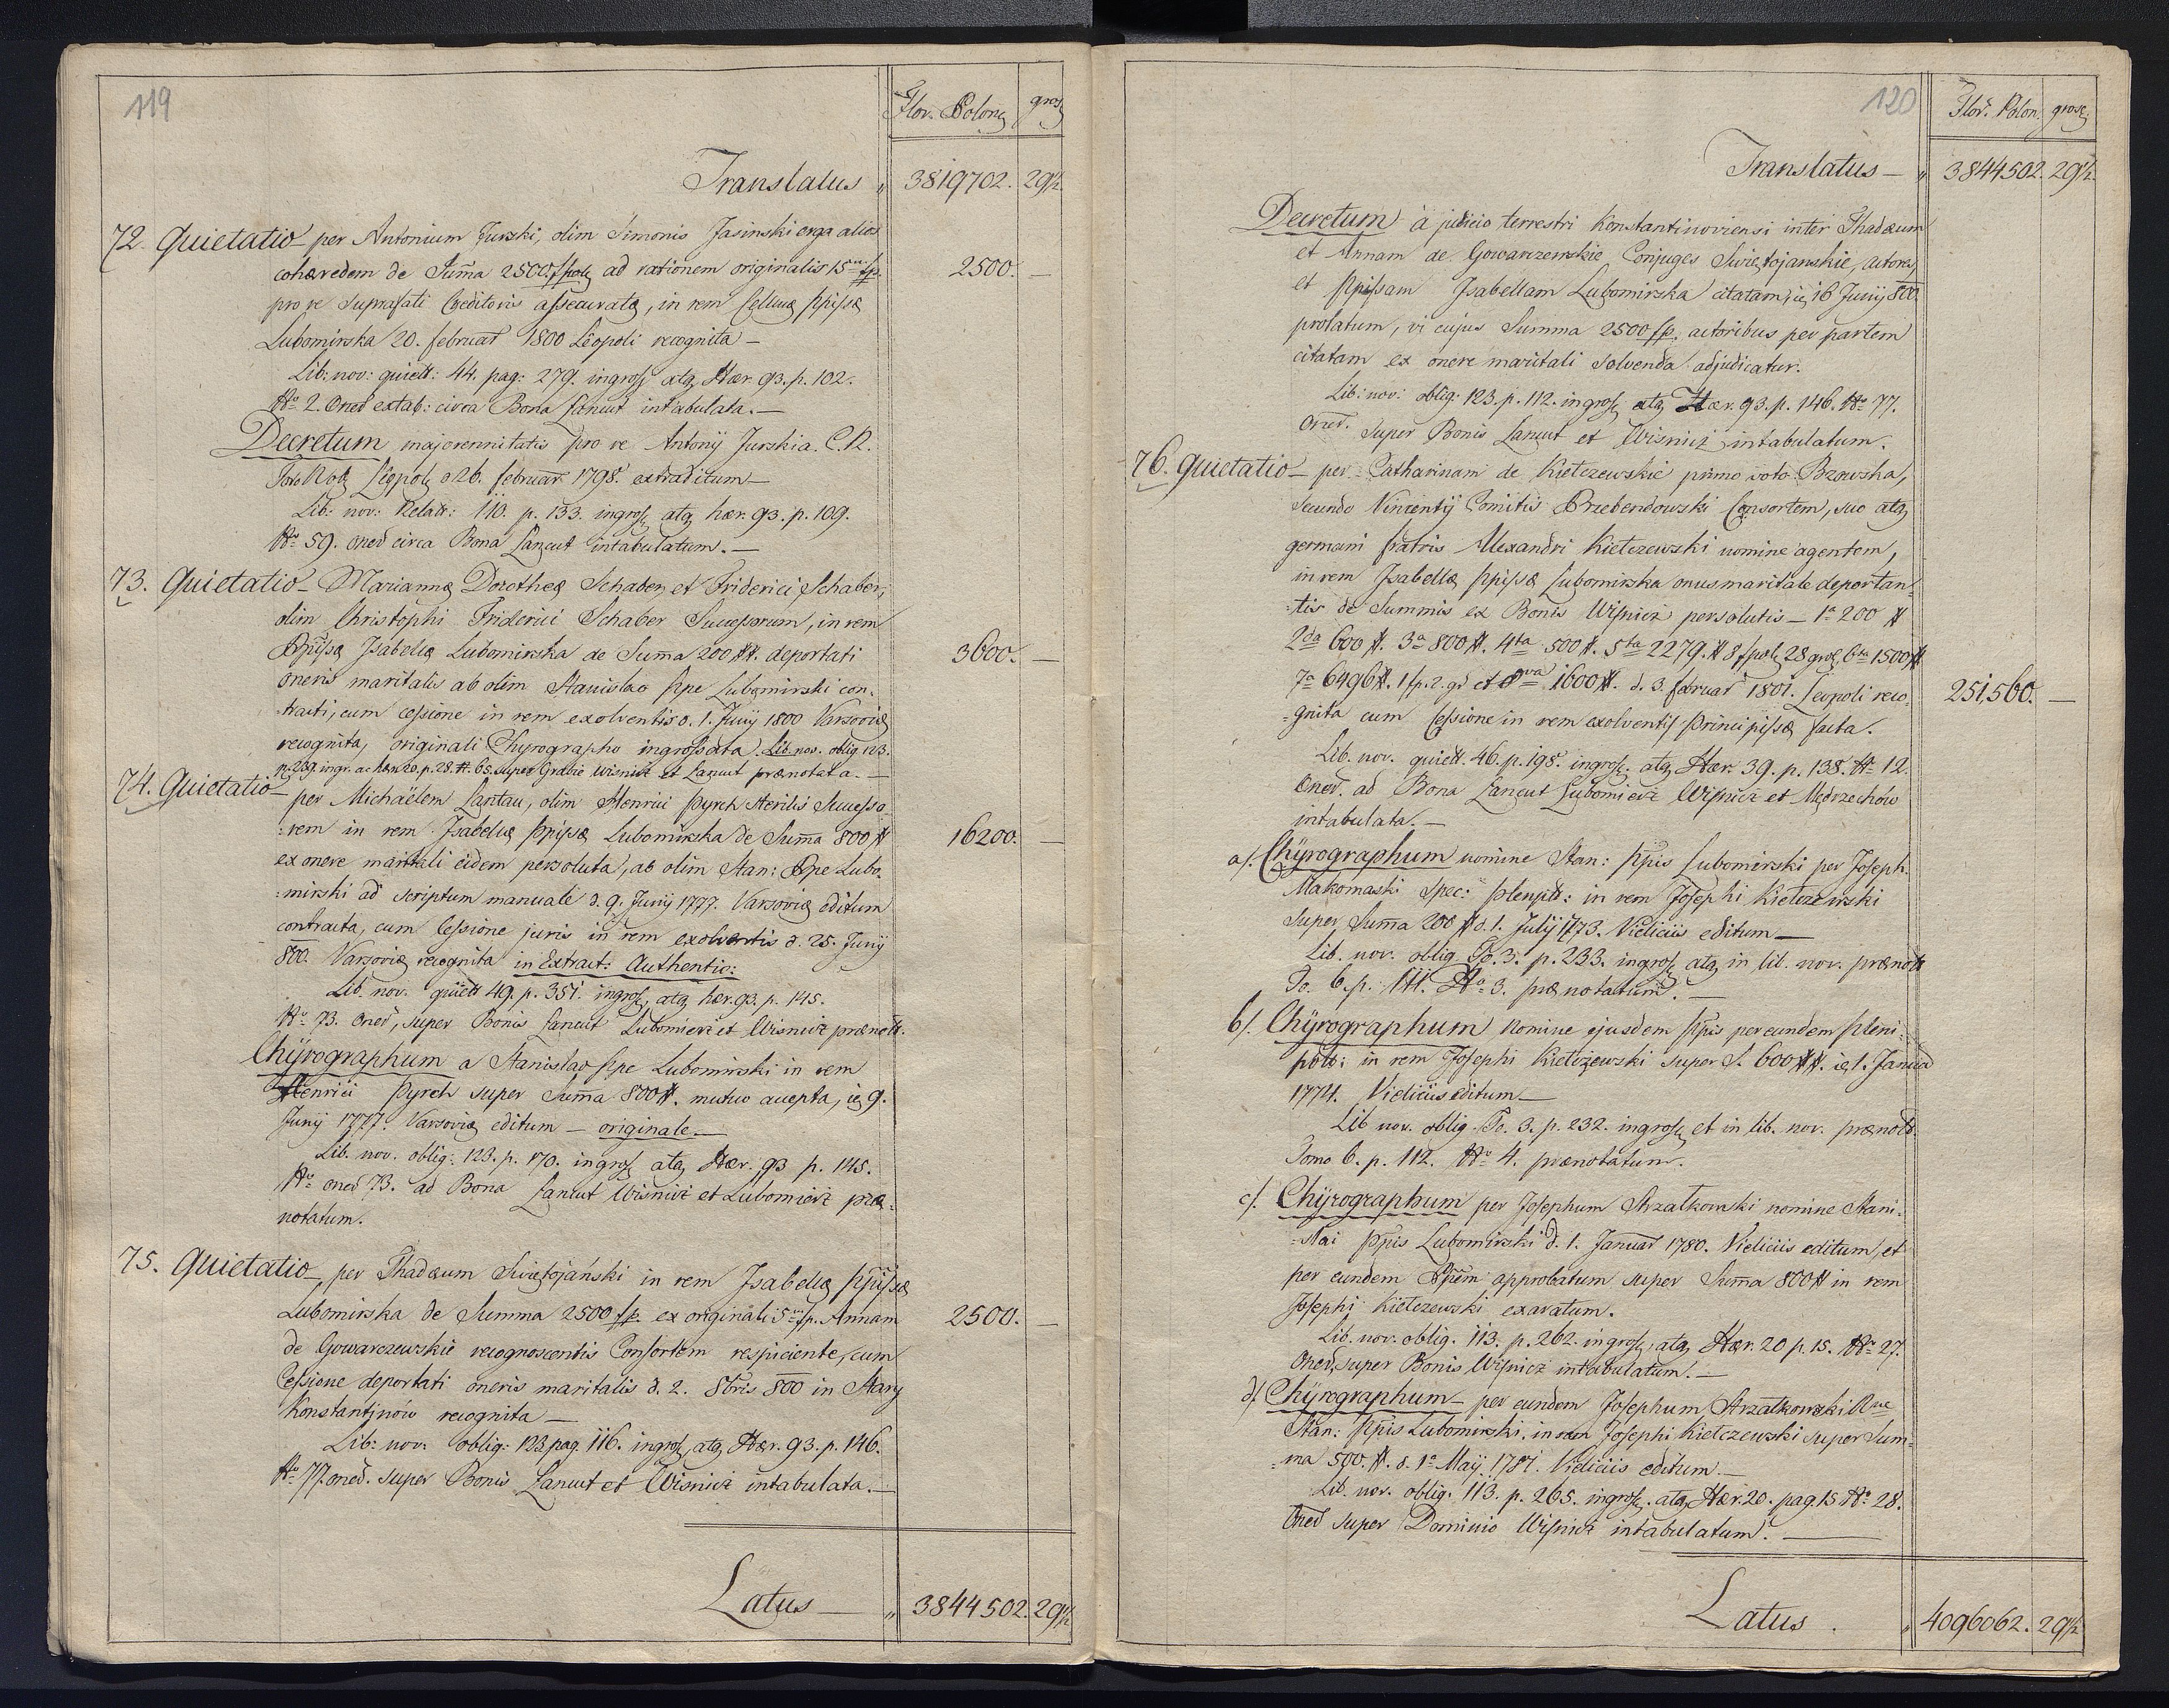 119
Flor. Polon. gros.
Translatus „ 3819702. 29½.
72. Quietatio per Antonium Jurski, olim Simonis Jasinski erga alios
cohæredem de Sum̄a 2500 fpol. ad rationem originalis 15 m fp. 2500. —
pro re suprafati Creditoris assecuratæ, in rem Cellmæ Ppissæ
Lubomirska 20. februar 1800 Leopoli recognita —
Lib: nov: quiett: 44. pag: 279. ingross. atq. Hær. 93. p. 102.
Nro 2. Oner extab: circa Bona Łancut intabulata. —
Decretum majorennitatis pro re Antonij Jurski a C. R.
Foro Nob. Leopol. d 26. februar 1798. extraditum —
Lib: nov: Relatt: 110. p. 133. ingross. atq. hær. 93. p. 109.
Nro 59. oner circa Bona Łancut intabulatum. —
73. Quietatio — Mariannæ Dorotheæ Schaber, et Friderici Schaber,
olim Christophi Friderici Schaber Successorum, in rem
Ppissæ Isabellæ Lubomirska de Sum̄a 200 ##. deportati 3600. —
oneris maritalis ab olim Stanislao Ppe Lubomirski con-
-tracti, cum cessione in rem exolventis d. 1. Junij 1800 Varsoviæ
recognita, originali Chyrographo ingrossata. Lib. nov. oblig. 123.
p. 239. ingr. ac hær. 20. p. 28. N. 65. super Grabie Wisnicz et Łancut prænotata. —
74. Quietatio — per Michaëlem Lantau, olim Henrici Pyrch sterilis Successo-
-rem in rem Isabellæ Ppissæ Lubomirska de Sum̄a 800 # 16200. —
ex onere maritali eidem persoluta, ab olim Stan: Ppe Lubo-
-mirski ad scriptum manuale d. 9. Junij 1777. Varsoviæ editum
contracta, cum Cessione juris in rem exolventis d. 25. Junij
800. Varsoviæ recognita in Extract: Authentic:
Lib. nov. quiett 49. p. 351. ingross. atq. hær. 93. p. 145.
Nro 73. oner, super Bonis Łancut Lubomierz et Wisnicz prænott.
Chÿrographum a Stanislao Ppe Lubomirski in rem
Henrici Pyrch super Sum̄a 800 #. mutuo accepta, 9.
Junij 1777. Varsoviæ editum — originale —
Lib. nov. oblig: 123. p. 170. ingross. atq. Hær. 93 p. 145.
Nro oner 73. ad Bona Łancut Wisnicz et Lubomierz præ-
notatum.
75. Quietatio per Thadæum Swiętojański in rem Isabellæ Ppissæ
Lubomirska de Summa 2500 fp. ex originali 5 m fp. Annam 2500. —
de Gowarczewskie recognoscentis Consortem respiciente, cum
Cessione deportati oneris maritalis d. 2. 8bris 800 in Stary
Konstantjnow recognita —
Lib: nov: oblig: 123 pag. 116. ingross. atq. Hær. 93. p. 146.
Nro 77. oner. super Bonis Łancut et Wisnicz intabulata. —
Latus — „ 3844502. 29½
120
Flor. Polon. gros.
Translatus — „ 3844502. 29½.
Decretum à judicio terrestri Konstantinoviensi inter Thadæum
et Annam de Gowarczewskie Conjuges Swiętojanskie, actores,
et Ppissam Isabellam Lubomirska citatam, 16 Junij 800.
prolatum, vi cujus Summa 2500 fp. actoribus per partem
citatam ex onere maritali solvenda adjudicatur.
Lib: nov: oblig: 123. p. 112. ingross. atq. Hær. 93. p. 146. Nro 77.
oner. super Bonis Łancut et Wisnicz intabulatum.
76. Quietatio — per Catharinam de Kiełczewskie primo voto Bzowska,
secundo Vincentij Comitis Przebendowski Consortem, suo atq.
germani fratris Alexandri Kiełczewski nomine agentem,
in rem Isabellæ Ppissæ Lubomirska onus maritale deportan-
-tis de Summis ex Bonis Wisnicz persolutis — 1a 200 #
2da 600 #. 3a 800 #. 4ta 500 #. 5ta 2279. # 8 fpol. 28 gros. 6ta 1500 #
7a 6496 #. 1 fp. 2. gr et 8va 1600 #. d. 3. februar 1801. Leopoli reco- 251,560. —
-gnita cum Cessione in rem exolventis Principissæ facta.
Lib. nov. quiett. 46. p. 198. ingross. atq. Hær. 39. p. 138. Nro 12.
Oner. ad Bona Łancut Lubomierz Wisnicz et Mędrzechów
intabulata. —
a). Chÿrographum nomine Stan: Ppis Lubomirski per Joseph.
Makomaski spec: plenptt: in rem Josephi Kiełczewski
super Sum̄a 200 # d. 1. Julÿ 1773. Vieliciis editum —
Lib. nov. oblig. To. 3. p. 233. ingross. atq. in lib. nov. prænott
To. 6. p. 111. Nro 3. prænotatum. —
b). Chÿrographum nomine ejusdem Ppis per eundem pleni-
pott: in rem Josephi Kiełczewski super S. 600 ##. 1. Januar
1774. Vieliciis editum —
Lib nov. oblig. To. 3. p. 232. ingross. et in lib. nov. prænott.
Tomo 6. p. 112. Nro 4. prænotatum.
c). Chÿrographum per Josephum Strzałkowski nomine Stani-
-slai Ppis Lubomirski d. 1. Januar 1780. Vieliciis editum, et
per eundem Ppem approbatum super Sum̄a 800 # in rem
Josephi Kiełczewski exaratum.
Lib. nov. oblig. 113. p. 262. ingross. atq. Hær. 20 p. 15. Nro 27.
Oner, super Bonis Wisnicz intabulatum. —
d). Chÿrographum — per eundem Josephum Strzałkowski Nne
Stan: Ppis Lubomirski, in rem Josephi Kiełczewski super Sum-
-ma 500. #. d. 1a Maij 1781. Vieliciis editum. —
Lib. nov. oblig. 113. p. 265. ingross. atq. Hær. 20. pag. 15 Nro 28.
Oner super Dominio Wisnicz intabulatum. —
Latus . „ 4096062. 29½